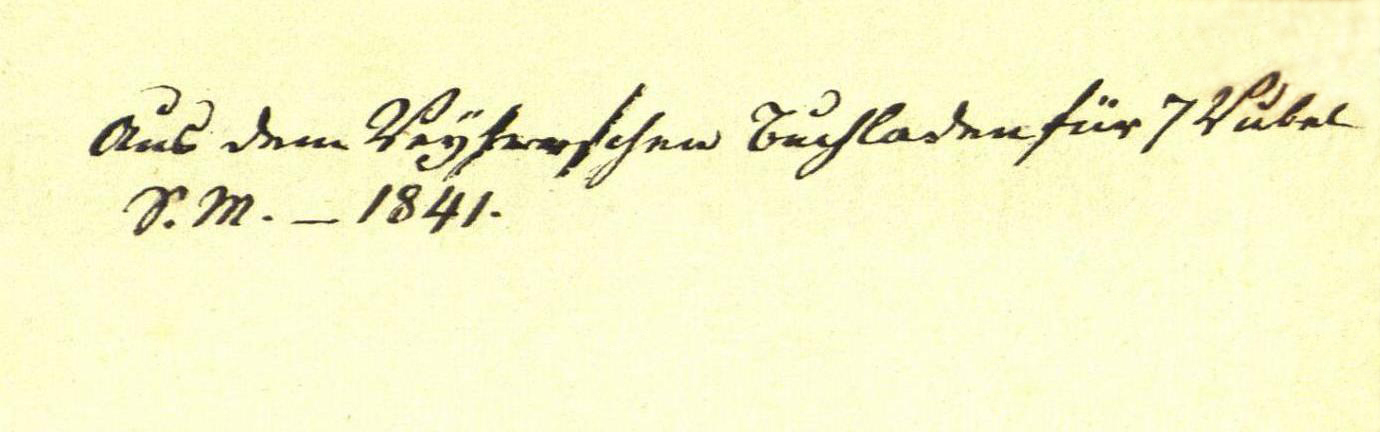 Aus dem Reyherschen Buchladen für 7 Rubel
S. M. – 1841.